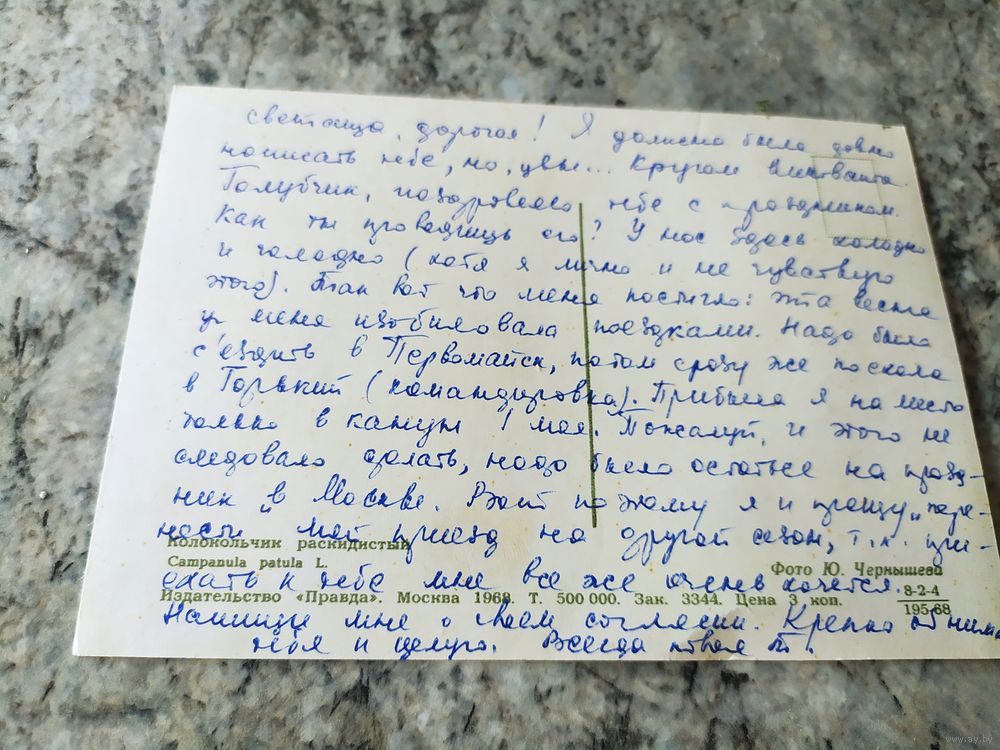 Светлица, дорогая! Я должна была давно
написать тебе, но, увы... Кругом виновата.
Голубчик, поздравляю тебя с праздником.
Как ты проводишь его? У нас здесь холодно
и голодно (хотя я лично и не чувствую
этого). Так вот что меня постигло: эта весна
у меня изобиловала поездками. Надо было
с'ездить в Первомайск, потом сразу же поехала
в Горький (командировка). Прибыла я на место
только в канун 1 мая. Пожалуй, и этого не
следовало делать, надо было остаться на празд-
ник в Москве. Вот поэтому я и прошу „пере-
нести" мой приезд на другой сезон, т.к. при-
Колокольчик раскидистый
Campanula patula L.
Фото Ю. Чернышева
ехать к тебе мне все же очень хочется.
8-2-4
Издательство «Правда». Москва 1968. Т. 500 000. Зак. 3344. Цена 3 коп.
195 68
Напиши мне о своем согласии. Крепко обним
тебя и целую. Всегда твоя Т.
www.ay.by